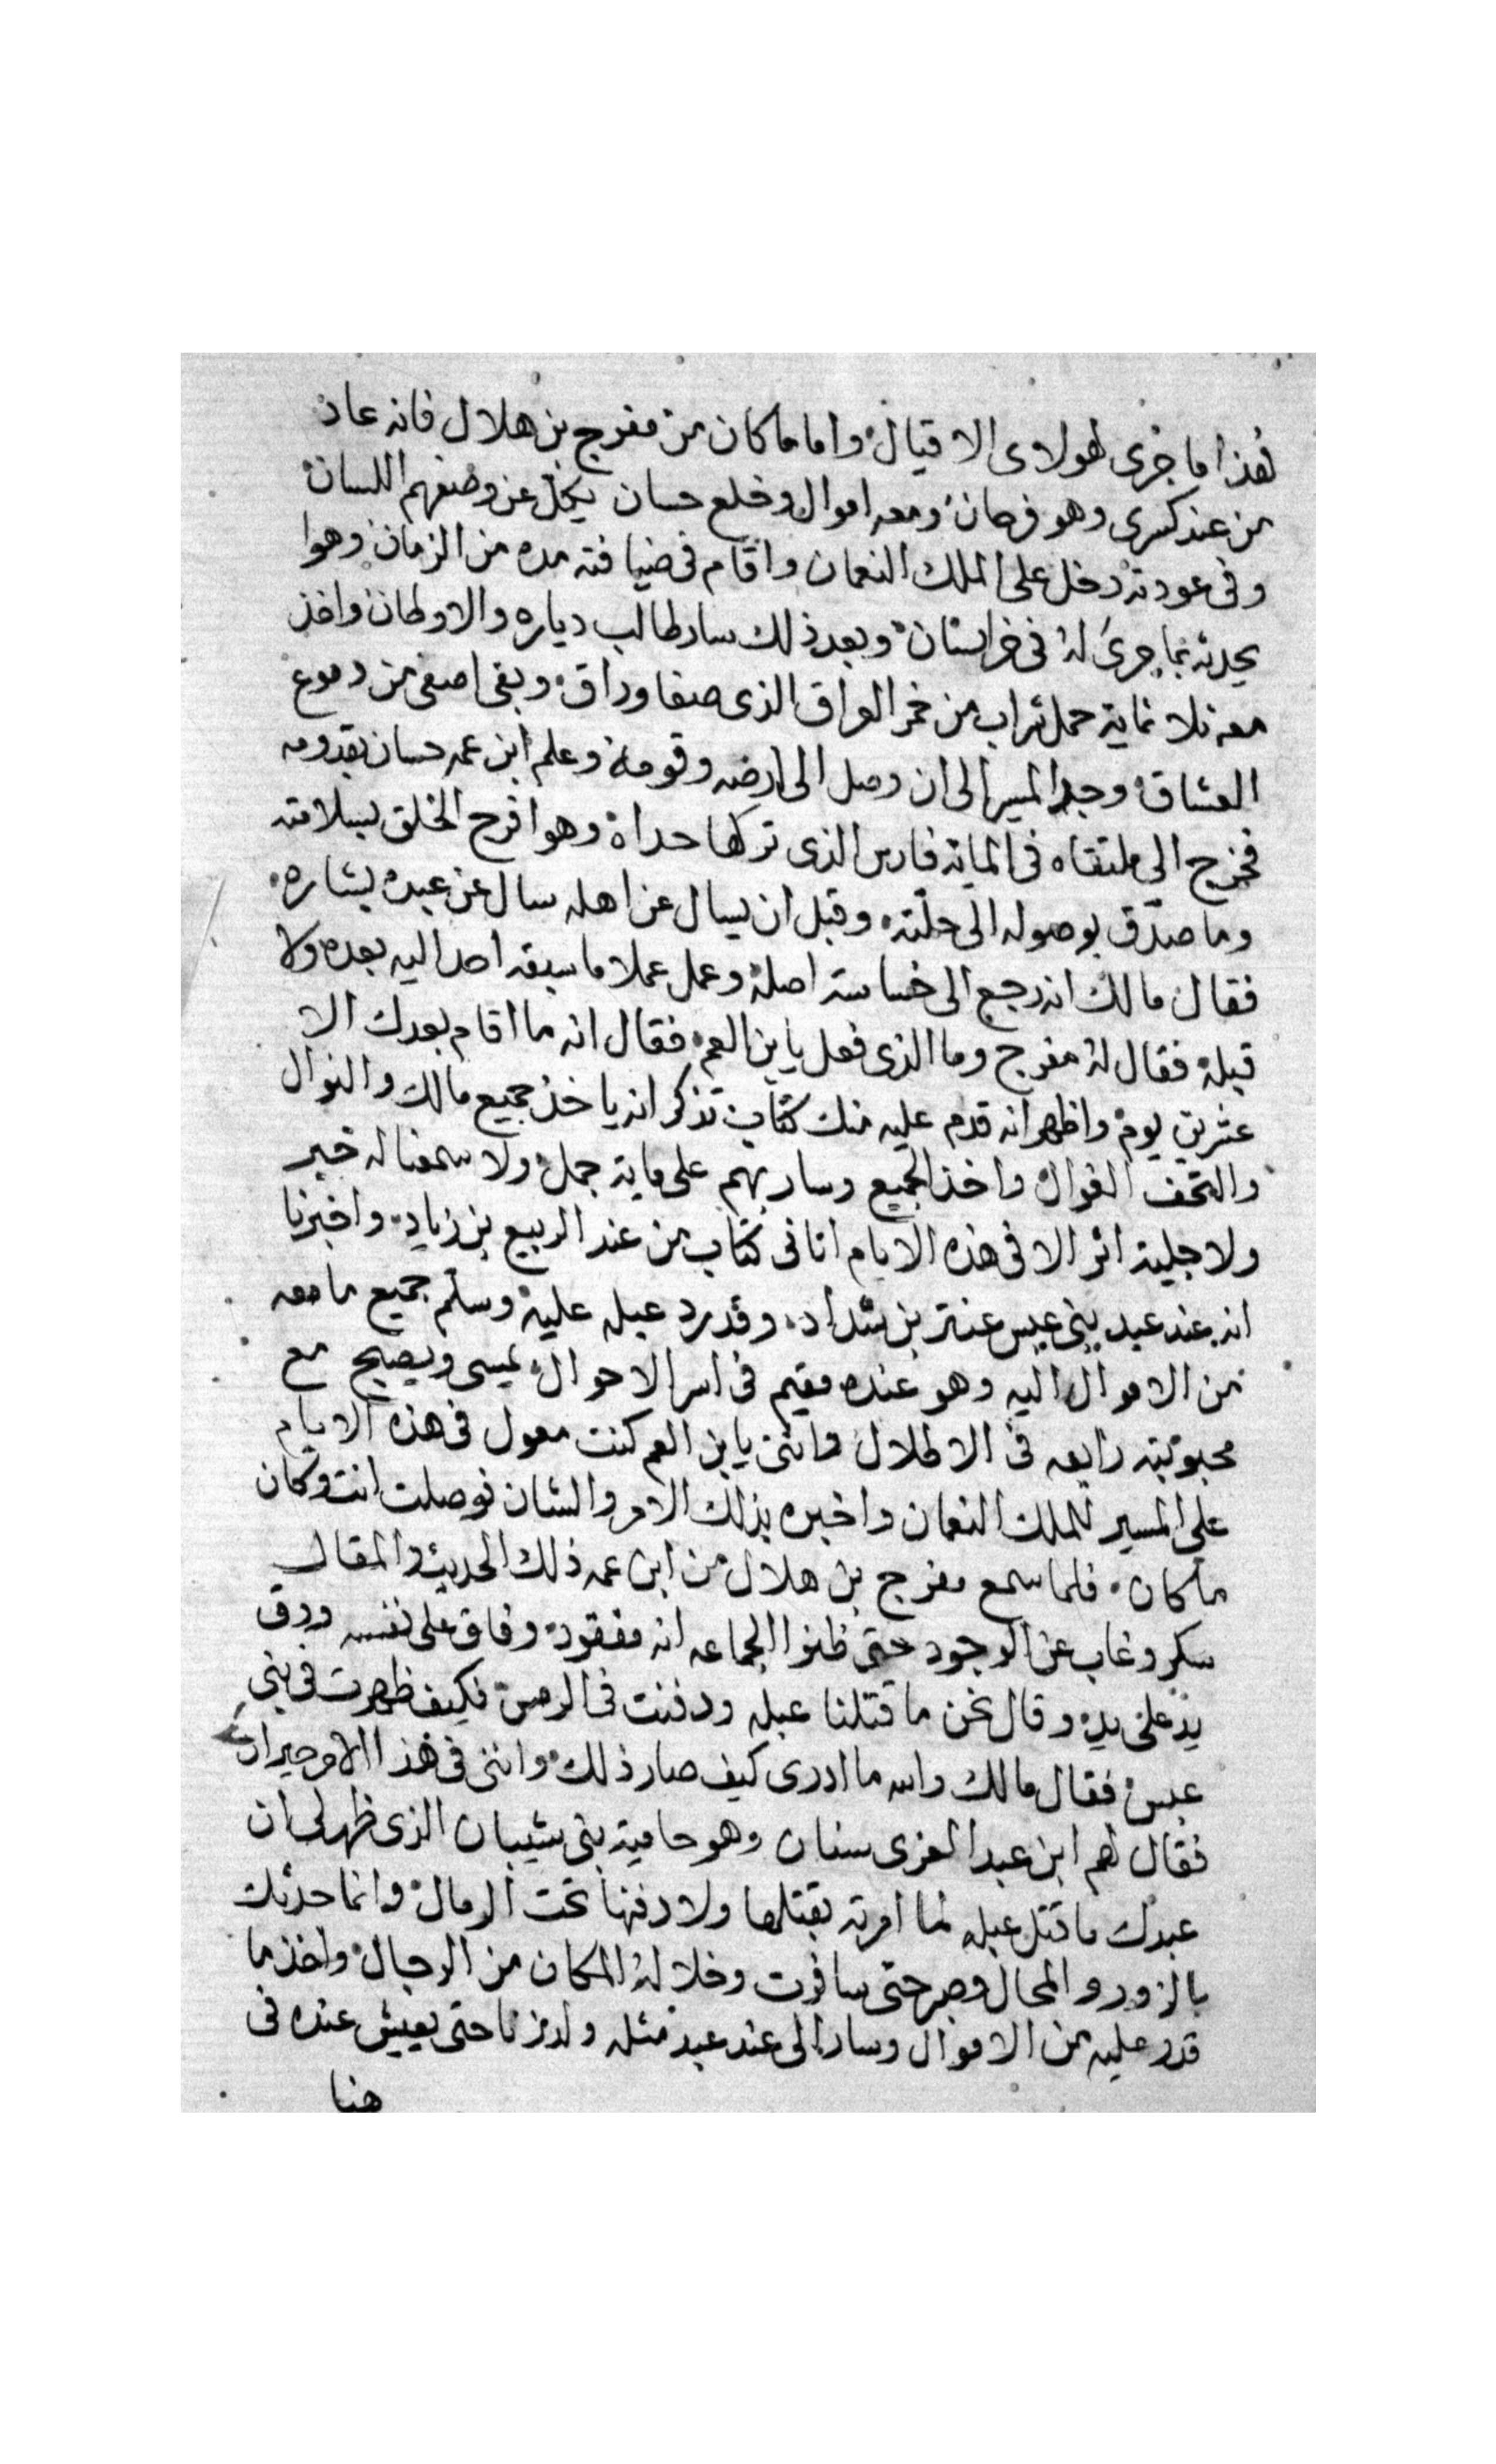 هذا ما جرى لهولاى الاقيال واما ما كان من مفرج بن هلال فانه عاد
من عند كسرى وهو فرحان ومعه اموال وخلع حسان يكل عن وصفهم اللسان
وفى عودته دخل على الملك النعمان واقام فى ضيافته مده من الزمان وهوا
يحدثه بما جرى له فى خراسان وبعد ذلك سار طالب دياره والاوطان واخذ
معه ثلاثماية حمل شراب من خمر الواق الذى صفا وراق وبقى اصفى من دموع
العشاق وجد المسير الى ان وصل الى ارضه وقومه وعلم ابن عمه حسان بقدومه
فخرج الى ملتقاه فى الماية فارس الذى تركها حداه وهوا افرح الخلق بسلامته
وما صدق بوصوله الى حلته وقبل ان يسال عن اهله سال عن عبده بشاره
فقال مالك انه رجع الى خساسته اصله وعمل عملا ما سبقه احد اليه بعده ولا
قبله فقال له مفرج وما الذى فعل يا بن العم فقال انه ما اقام بعدك الا
عشرين يوم واظهر انه قدم عليه منك كتاب تذكر انه ياخذ جميع مالك والنوال
والتحف الغوال واخذ الجميع وسار بهم على ماية جمل ولا سمعنا له خبر
ولا جلية اثر الا فى هذه الايام اتانى كتاب من عند الربيع بن زياد واخبرنا
انه عند عبد بنى عبس عنتر بن شداد وقد رد عبله عليه وسلم جميع ما معه
من الاموال اليه وهو عنده مقيم فى اسر الاحوال يمسى ويصبح مع
محبوبته رابعه فى الاطلال واننى يا بن العم كنت معول فى هذه الايام
على المسير للملك النعمان واخبره بذلك الامر والشان فوصلت انت وكان
ما كان فلما سمع مفرج بن هلال من ابن عمه ذلك الحديث والمقال
سكر وغاب عن الوجود حتى ظنوا الجماعه انه مفقود وفاق على نفسه ودق
يد على يد وقال نحن ما قتلنا عبله ودفنت فى الرمس فكيف ظهرت فى بنى
عبس فقال مالك والله ما ادرى كيف صار ذلك واننى فى هذا الامر حيران
فقال لهم ابن عبد العزى سنان وهو حامية بنى شيبان الذى ظهر لى ان
عبدك ما قتل عبله لما امرته بقتلها ولا دفنها تحت الرمال وانما حدثك
بالزور والمحال وصبر حتى سافرت وخلا له المكان من الرجال واخذ ما
قدر عليه من الاموال وسار الى عند عبد مثله ولد زنا حتى يعيش عنده فى
هنا